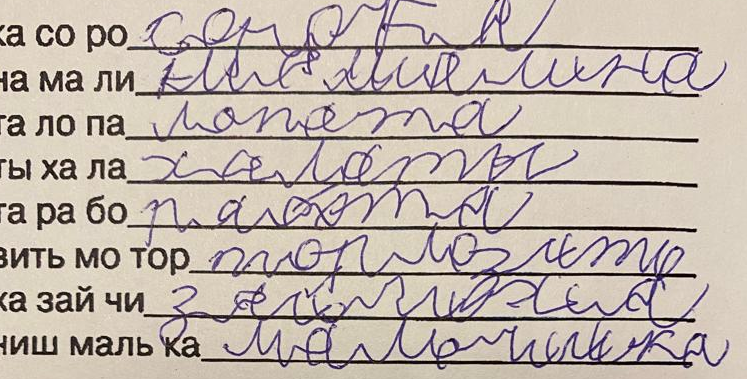 ка со ро сорока
на ма ли малина
та ло па лопата
ты ха ла халаты
та ра бо работа
зить мо тор тормозить
ка зай чи зайчиха
чиш маль ка мальчишка